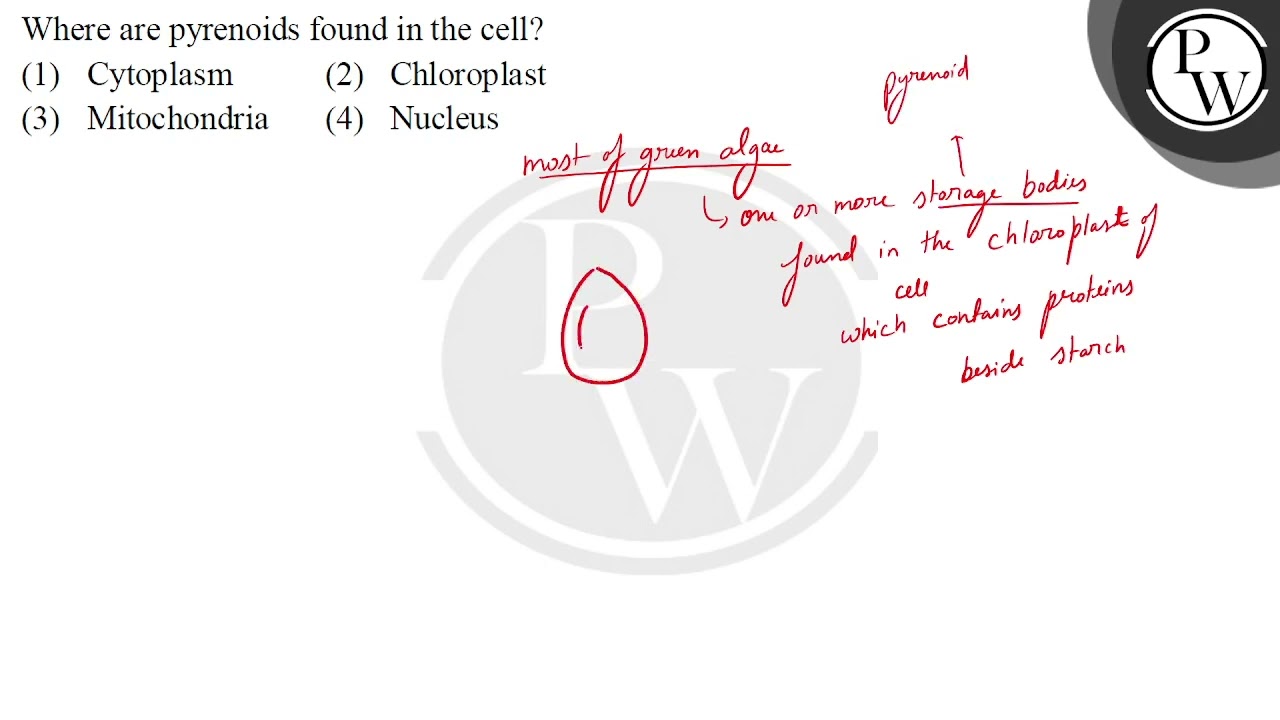 Where are pyrenoids found in the cell?
(1) Cytoplasm (2) Chloroplast
(3) Mitochondria (4) Nucleus
pyrenoid
most of green algae
one or more storage bodies
found in the chloroplast of
cell
which contains proteins
beside starch
P
W
P
W